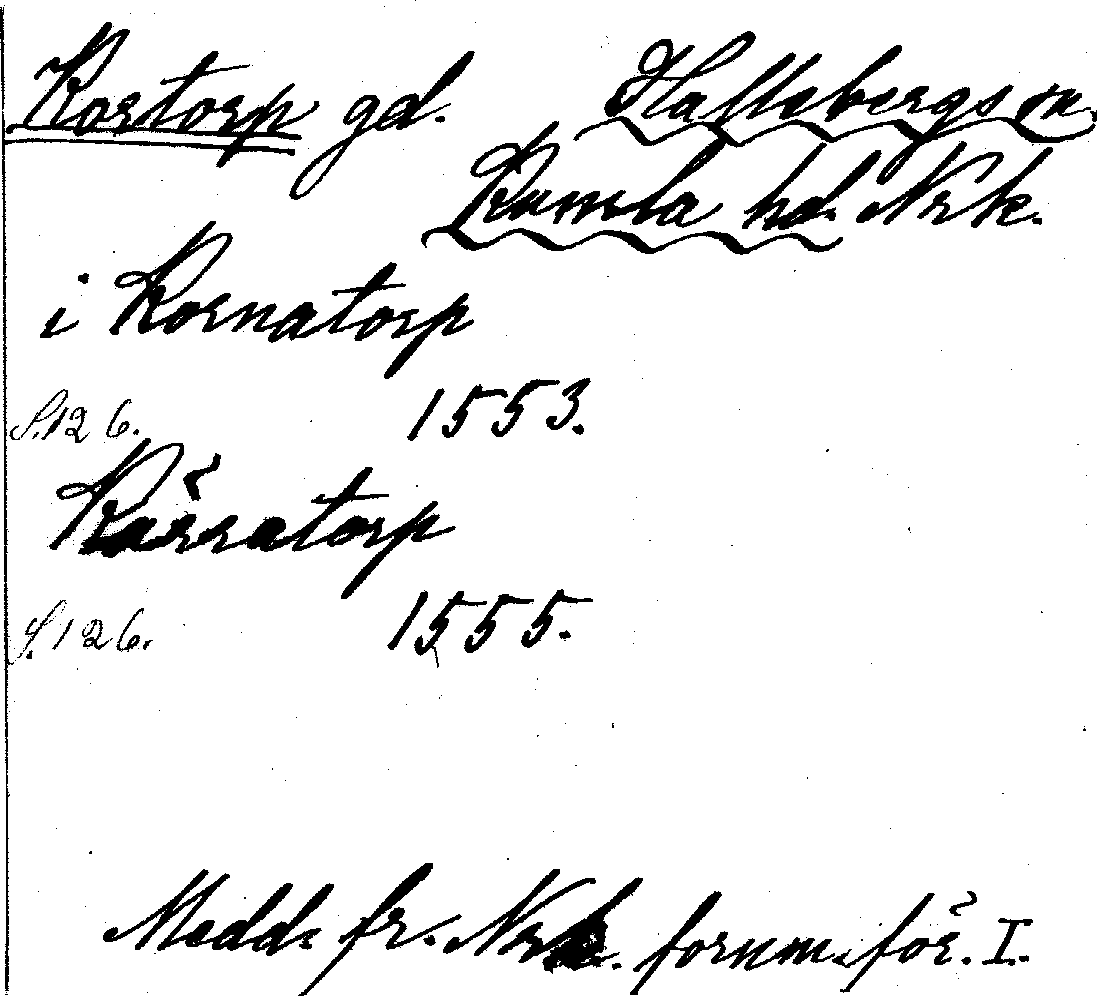 Kortorp gd. Hallsbergs sn
Kumla hd. Nrk.
i Kornatorp
S.126. 1553.
Kårratorp
S.126. 1555.
Medd. fr. Nrk. fornm. för. I.